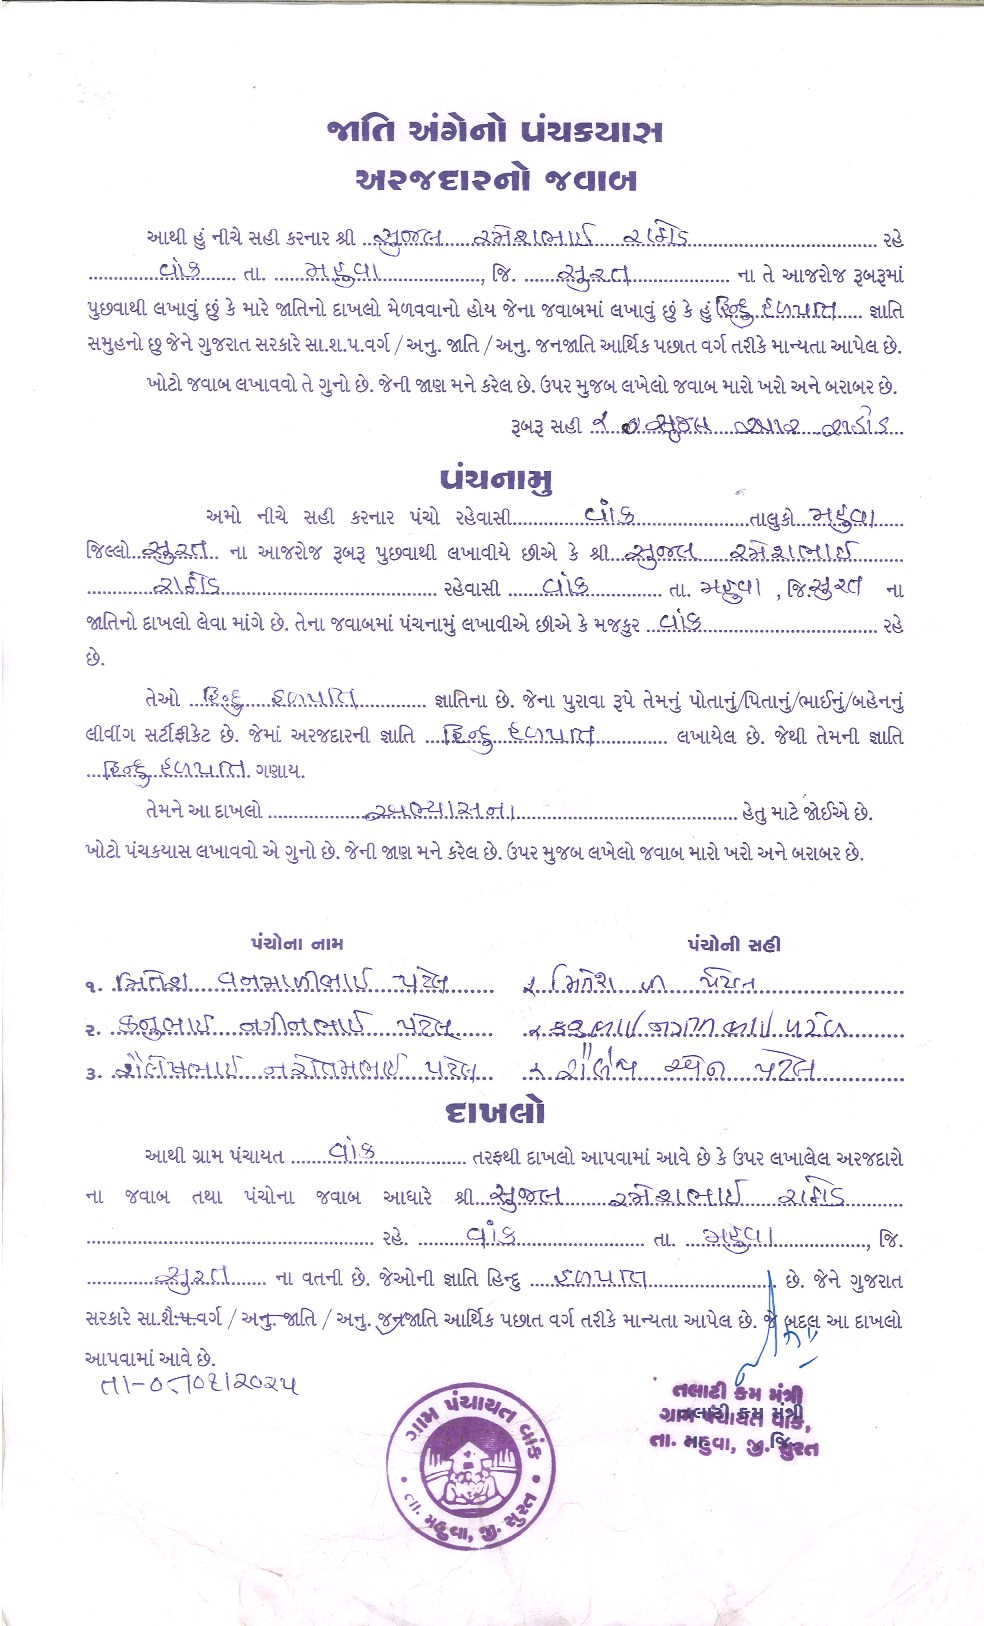 જાતિ અંગેનો પંચકયાસ
અરજદારનો જવાબ
આથી હું નીચે સહી કરનાર શ્રી સુજલ રમેશભાઈ રાઠોડ રહે
વાંક તા. મહુવા, જિ. સુરત ના તે આજરોજ રૂબરૂમાં
પુછવાથી લખાવું છું કે મારે જાતિનો દાખલો મેળવવાનો હોય જેના જવાબમાં લખાવું છું કે હું હિન્દુ હળપતિ જ્ઞાતિ
સમુહનો છુ જેને ગુજરાત સરકારે સા.શ.પ.વર્ગ / અનુ. જાતિ / અનુ. જનજાતિ આર્થિક પછાત વર્ગ તરીકે માન્યતા આપેલ છે.
ખોટો જવાબ લખાવવો તે ગુનો છે. જેની જાણ મને કરેલ છે. ઉપર મુજબ લખેલો જવાબ મારો ખરો અને બરાબર છે.
રૂબરૂ સહી સુજલ આર રાઠોડ
પંચનામુ
અમો નીચે સહી કરનાર પંચો રહેવાસી વાંક તાલુકો મહુવા
જિલ્લો સુરત ના આજરોજ રૂબરૂ પુછવાથી લખાવીયે છીએ કે શ્રી સુજલ રમેશભાઈ
રાઠોડ રહેવાસી વાંક તા. મહુવા, જિ. સુરત ના
જાતિનો દાખલો લેવા માંગે છે. તેના જવાબમાં પંચનામું લખાવીએ છીએ કે મજકુર વાંક રહે
છે.
તેઓ હિન્દુ હળપતિ જ્ઞાતિના છે. જેના પુરાવા રૂપે તેમનું પોતાનું/પિતાનું/ભાઈનું/બહેનનું
લીવીંગ સર્ટીફીકેટ છે. જેમાં અરજદારની જ્ઞાતિ હિન્દુ હળપતિ લખાયેલ છે. જેથી તેમની જ્ઞાતિ
હિન્દુ હળપતિ ગણાય.
તેમને આ દાખલો અભ્યાસના હેતુ માટે જોઈએ છે.
ખોટો પંચકયાસ લખાવવો એ ગુનો છે. જેની જાણ મને કરેલ છે. ઉપર મુજબ લખેલો જવાબ મારો ખરો અને બરાબર છે.
પંચોના નામ પંચોની સહી
૧. મિતેશ વનમાળીભાઈ પટેલ
૨. કનુભાઈ નગીનભાઈ પટેલ
૩. શૈલેષભાઈ નરોતમભાઈ પટેલ શૈલેષ એન પટેલ
દાખલો
આથી ગ્રામ પંચાયત વાંક તરફથી દાખલો આપવામાં આવે છે કે ઉપર લખાલેલ અરજદારો
ના જવાબ તથા પંચોના જવાબ આધારે શ્રી સુજલ રમેશભાઈ રાઠોડ
રહે. વાંક તા. મહુવા, જિ.
સુરત ના વતની છે. જેઓની જ્ઞાતિ હિન્દુ હળપતિ છે. જેને ગુજરાત
સરકારે સા.શૈ.પ.વર્ગ / અનુ. જાતિ / અનુ. જનજાતિ આર્થિક પછાત વર્ગ તરીકે માન્યતા આપેલ છે. જે બદલ આ દાખલો
આપવામાં આવે છે.
તલાટી કમ મંત્રી
ગ્રામ પંચાયત વાંક,
તા. મહુવા, જી. સુરત
ગ્રામ પંચાયત વાંક
તા. મહુવા, જી. સુરત